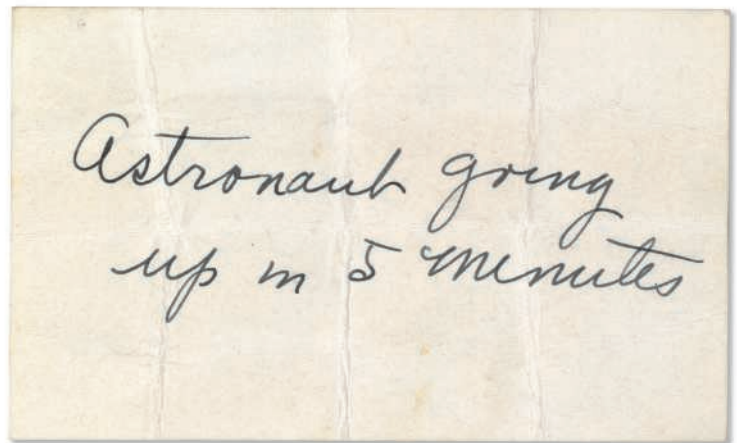 Astronaut going
up in 5 minutes